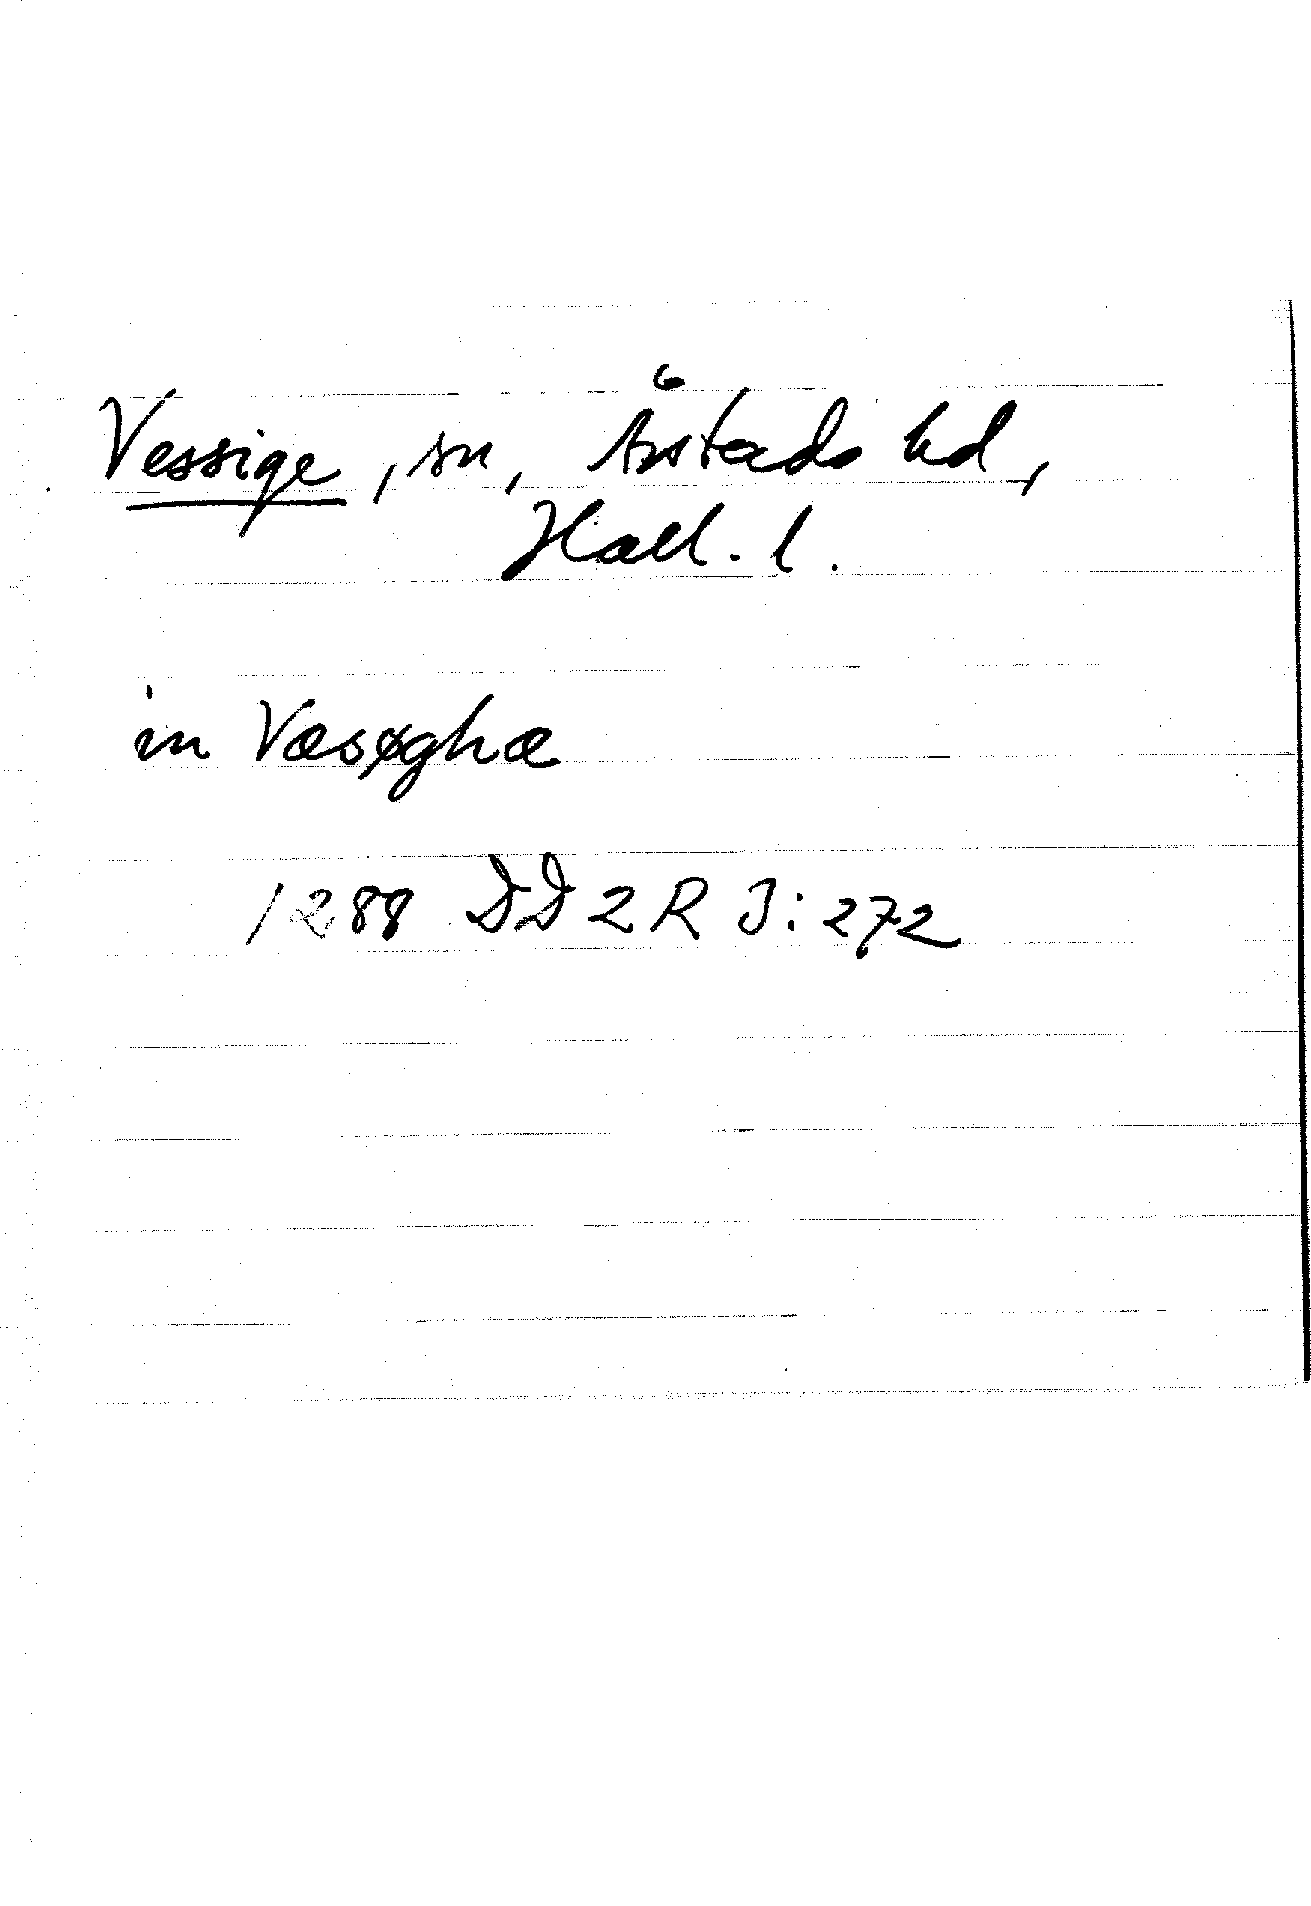 Vessige, sn, Årstads hd,
Hall. l.
in Væsøghæ
1288 DD 2 R 3: 272